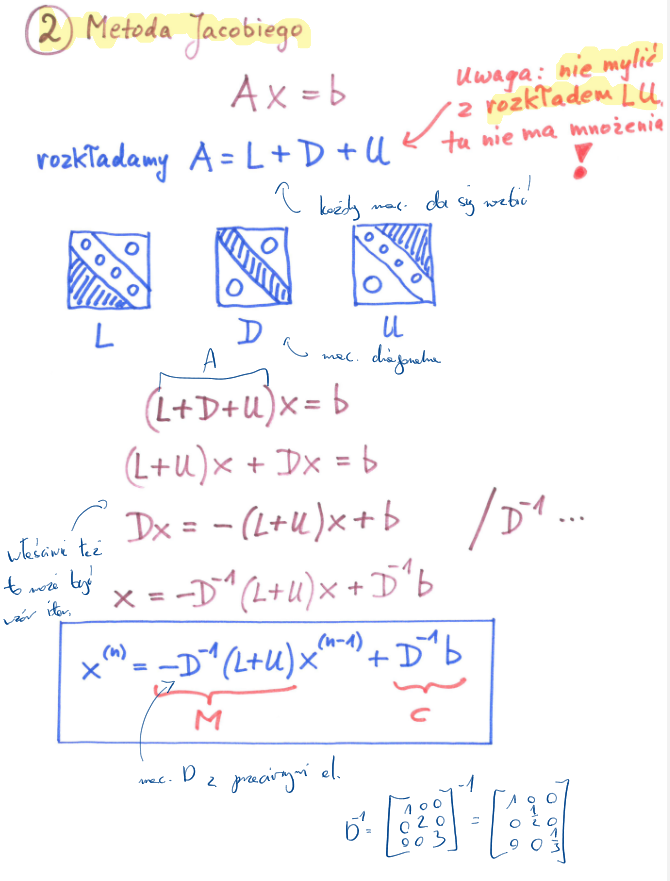 2 Metoda Jacobiego
Ax = b
Uwaga: nie mylić
z rozkładem LU,
tu nie ma mnożenia
!
rozkładamy A = L + D + U
każdy mac. da się rozbić
L D U
mac. diagonalna
A
(L+D+U)x = b
(L+U)x + Dx = b
Dx = -(L+U)x + b /D⁻¹ ...
właściwie też
to może być
wzór iter.
x = -D⁻¹(L+U)x + D⁻¹b
x⁽ⁿ⁾ = -D⁻¹(L+U)x⁽ⁿ⁻¹⁾ + D⁻¹b
M C
mac. D z przeciwnymi el.
D⁻¹ = [1 0 0]⁻¹ = [1 0 0]
[0 2 0] [0 1/2 0]
[0 0 3] [0 0 1/3]